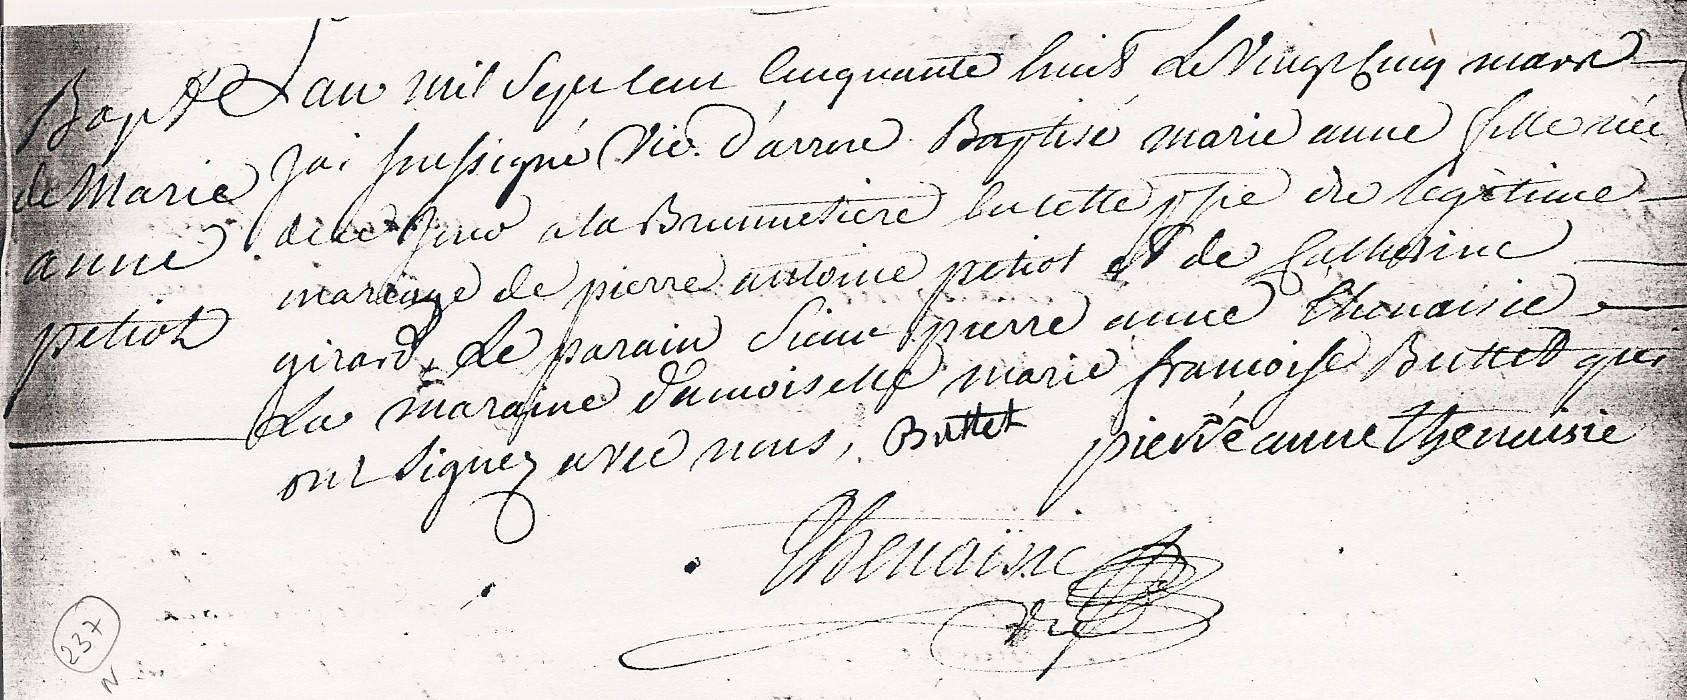 Bapt
de Marie
anne
petiot
L'an mil Sept cent Cinquante huit Le Vingt Cinq mars
J'ai soussigné Vic. d'arron Baptisé marie anne fille née
de ce jour a la Brunnetiere en cette psse de legitime
mariage de pierre antoine petiot et de Catherine
girard, Le parain Sieur pierre anne thenaisie
La maraine damoiselle marie francoise Buttet qui
ont Signez avec nous, Buttet pierre anne thenaisie
thenaisie
Vic
237
N